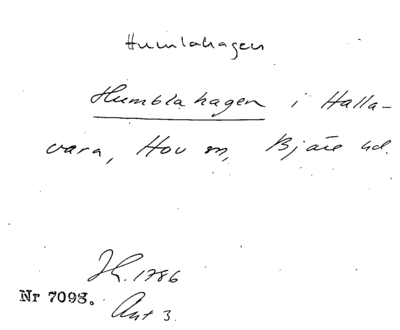 Humlahagen
Humblahagen i Halla-
vara, Hov sn, Bjäre hd.
Jh. 1786
Nr 7098. Akt 3.